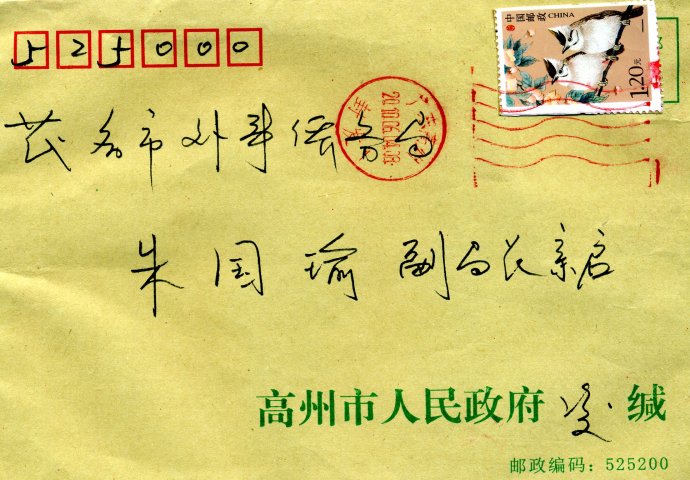 中国邮政 CHINA
1.20元
525000
2010.06.04.09
茂名市外事侨务局
朱国瑜副局长亲启
高州市人民政府 缄
邮政编码：525200